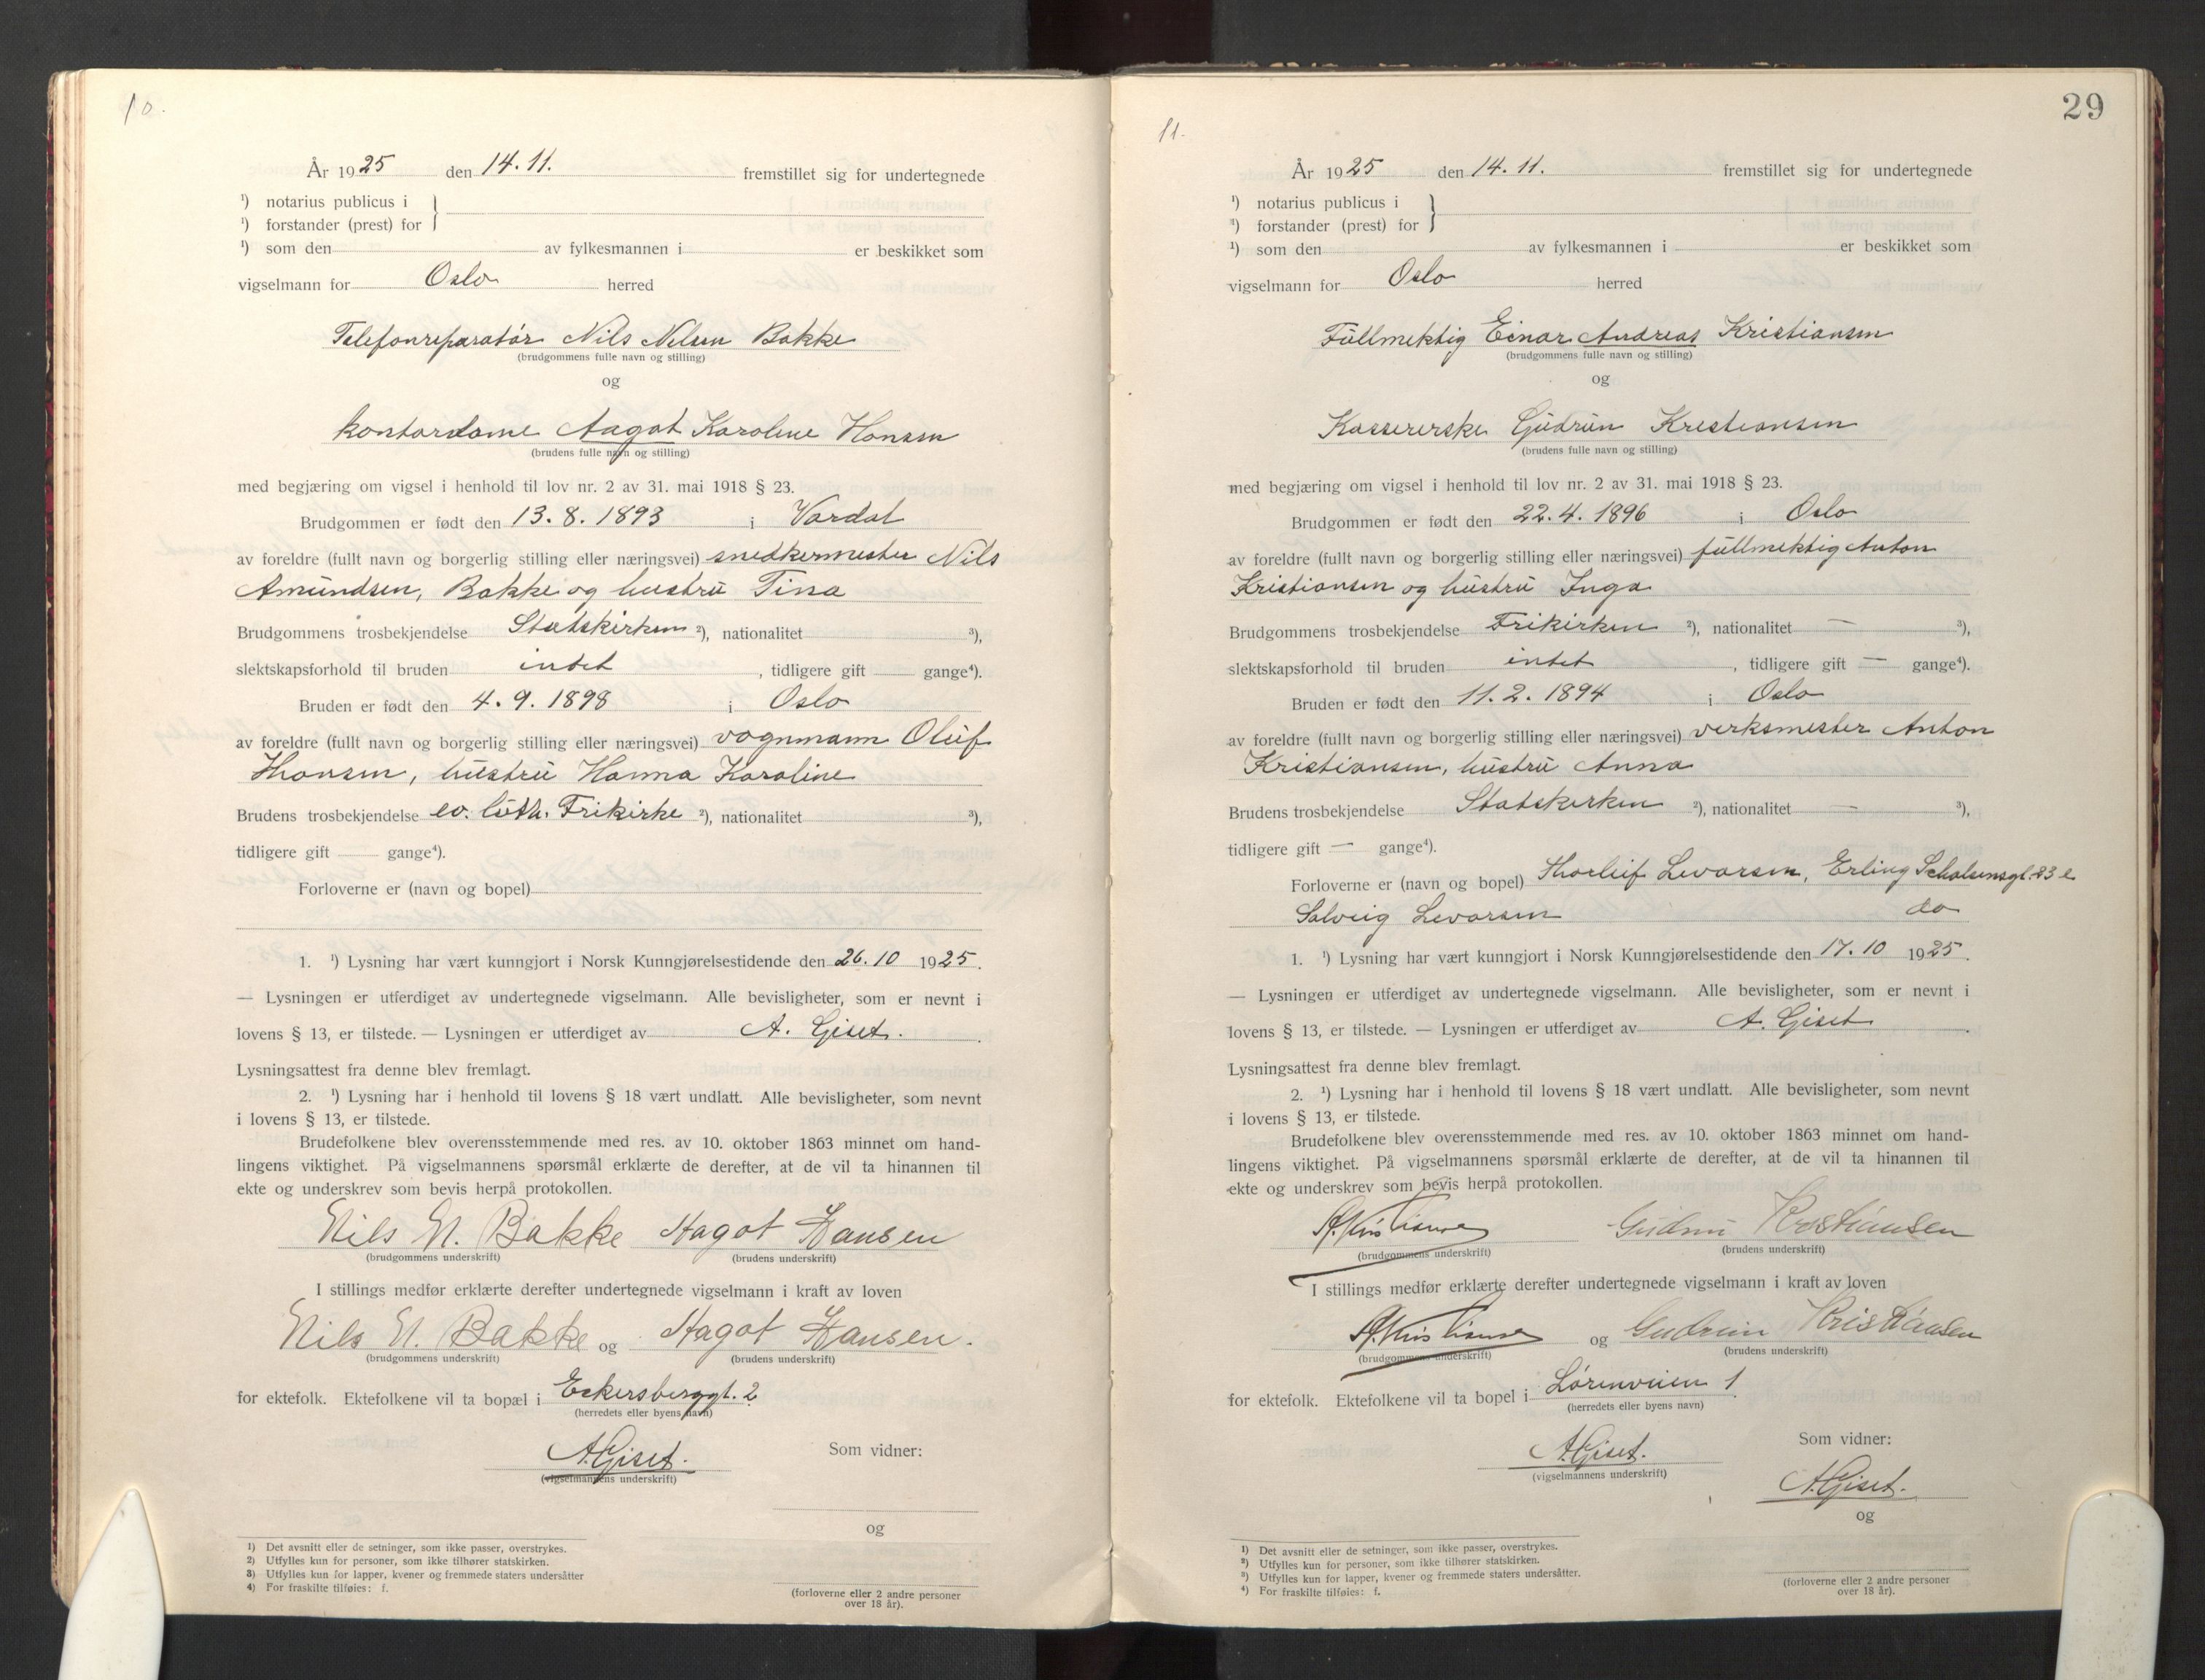 10.
År 1925 den 14.11. fremstillet sig for undertegnede
¹) notarius publicus i
¹) forstander (prest) for
¹) som den av fylkesmannen i er beskikket som
vigselmann for Oslo herred
Telefonreparatør Nils Nelsen Bakke
(brudgommens fulle navn og stilling)
og
kontordame Aagot Karoline Hansen
(brudens fulle navn og stilling)
med begjæring om vigsel i henhold til lov nr. 2 av 31. mai 1918 § 23.
Brudgommen er født den 13.8.1893 i Vardal
av foreldre (fullt navn og borgerlig stilling eller næringsvei) snedkermester Nils
Amundsen, Bakke og hustru Tina
Brudgommens trosbekjendelse Statskirken ²), nationalitet ³),
slektskapsforhold til bruden intet, tidligere gift — gange⁴).
Bruden er født den 4.9.1898 i Oslo
av foreldre (fullt navn og borgerlig stilling eller næringsvei) vognmann Oluf
Hansen, hustru Hanna Karoline
Brudens trosbekjendelse ev. luth. Frikirke ²), nationalitet ³),
tidligere gift — gange⁴).
Forloverne er (navn og bopel)
1. ¹) Lysning har vært kunngjort i Norsk Kunngjørelsestidende den 26.10 1925.
— Lysningen er utferdiget av undertegnede vigselmann. Alle bevisligheter, som er nevnt i
lovens § 13, er tilstede. — Lysningen er utferdiget av A. Giset.
Lysningsattest fra denne blev fremlagt.
2. ¹) Lysning har i henhold til lovens § 18 vært undlatt. Alle bevisligheter, som nevnt
i lovens § 13, er tilstede.
Brudefolkene blev overensstemmende med res. av 10. oktober 1863 minnet om hand-
lingens viktighet. På vigselmannens spørsmål erklærte de derefter, at de vil ta hinannen til
ekte og underskrev som bevis herpå protokollen.
Nils N. Bakke Aagot Hansen
(brudgommens underskrift) (brudens underskrift)
I stillings medfør erklærte derefter undertegnede vigselmann i kraft av loven
Nils N. Bakke og Aagot Hansen.
(brudgommens underskrift) (brudens underskrift)
for ektefolk. Ektefolkene vil ta bopæl i Eckersberggt. 2
(herredets eller byens navn)
A. Giset. Som vidner:
(vigselmannens underskrift)
og
¹) Det avsnitt eller de setninger, som ikke passer, overstrykes.
2) Utfylles kun for personer, som ikke tilhører statskirken.
3) Utfylles kun for lapper, kvener og fremmede staters undersåtter
4) For fraskilte tilføies: f.
(forloverne eller 2 andre personer
over 18 år).
29
11.
År 1925 den 14.11. fremstillet sig for undertegnede
¹) notarius publicus i
¹) forstander (prest) for
¹) som den av fylkesmannen i er beskikket som
vigselmann for Oslo herred
Fullmektig Einar Andreas Kristiansen
(brudgommens fulle navn og stilling)
og
Kassererske Gudrun Kristiansen
(brudens fulle navn og stilling)
med begjæring om vigsel i henhold til lov nr. 2 av 31. mai 1918 § 23.
Brudgommen er født den 22.4.1896 i Oslo
av foreldre (fullt navn og borgerlig stilling eller næringsvei) fullmektig Anton
Kristiansen og hustru Inga
Brudgommens trosbekjendelse Frikirken ²), nationalitet — ³),
slektskapsforhold til bruden intet, tidligere gift — gange⁴).
Bruden er født den 11.2.1894 i Oslo
av foreldre (fullt navn og borgerlig stilling eller næringsvei) verksmester Anton
Kristiansen, hustru Anna
Brudens trosbekjendelse Statskirken ²), nationalitet — ³),
tidligere gift — gange⁴).
Forloverne er (navn og bopel) Thorleif Levorsen, Erling Skjalsensgt. 23 e
Solveig Levorsen do
1. ¹) Lysning har vært kunngjort i Norsk Kunngjørelsestidende den 17.10 1925.
— Lysningen er utferdiget av undertegnede vigselmann. Alle bevisligheter, som er nevnt i
lovens § 13, er tilstede. — Lysningen er utferdiget av A. Giset.
Lysningsattest fra denne blev fremlagt.
2. ¹) Lysning har i henhold til lovens § 18 vært undlatt. Alle bevisligheter, som nevnt
i lovens § 13, er tilstede.
Brudefolkene blev overensstemmende med res. av 10. oktober 1863 minnet om hand-
lingens viktighet. På vigselmannens spørsmål erklærte de derefter, at de vil ta hinannen til
ekte og underskrev som bevis herpå protokollen.
A. Kristiansen Gudrun Kristiansen
(brudgommens underskrift) (brudens underskrift)
I stillings medfør erklærte derefter undertegnede vigselmann i kraft av loven
A. Kristiansen og Gudrun Kristiansen
(brudgommens underskrift) (brudens underskrift)
for ektefolk. Ektefolkene vil ta bopel i Lørenveien 1
(herredets eller byens navn)
A. Giset. Som vidner:
(vigselmannens underskrift)
A. Giset.
og
¹) Det avsnitt eller de setninger, som ikke passer, overstrykes.
²) Utfylles kun for personer, som ikke tilhører statskirken.
³) Utfylles kun for lapper, kvener og fremmede staters undersåtter.
⁴) For fraskilte tilføies: f.
(forloverne eller 2 andre personer
over 18 år).